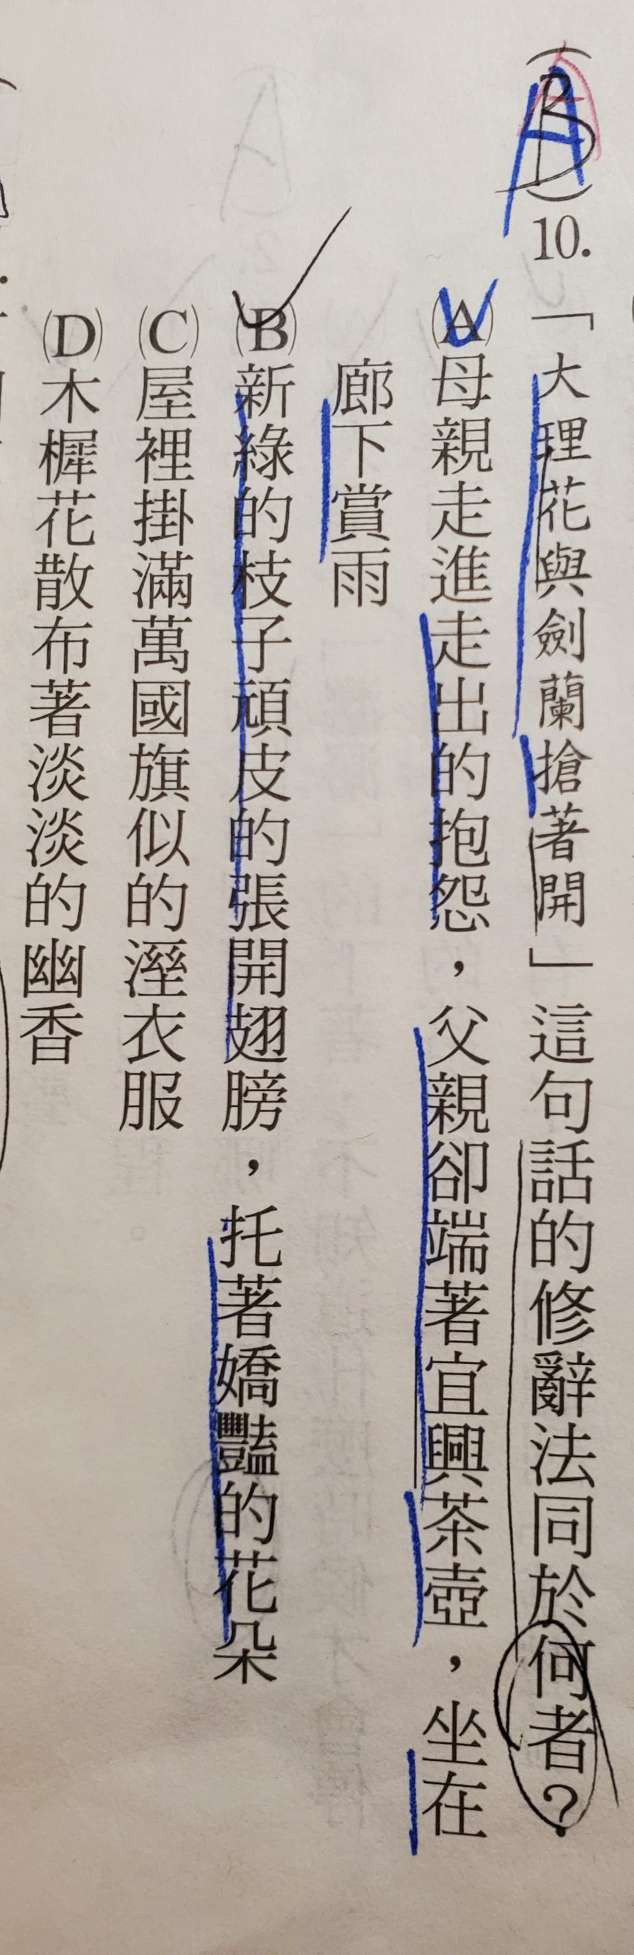 (B)10.「大理花與劍蘭搶著開」這句話的修辭法同於何者?
(A)母親走進走出的抱怨,父親卻端著宜興茶壺,坐在
廊下賞雨
(B)新綠的枝子頑皮的張開翅膀,托著嬌豔的花朵
(C)屋裡掛滿萬國旗似的溼衣服
(D)木樨花散布著淡淡的幽香